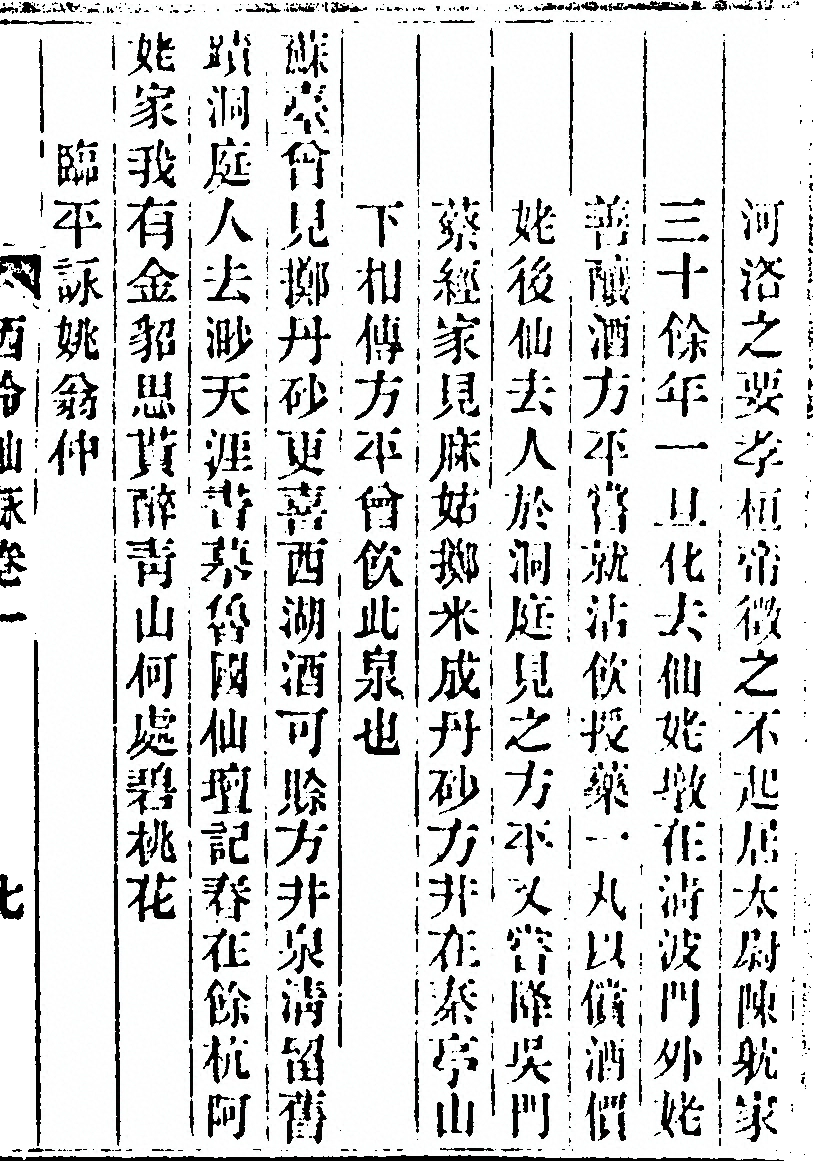 河洛之要孝桓帝徵之不起居太尉陳耽家
三十餘年一旦化去仙姥墩在清波門外姥
善釀酒方平嘗就沽飲授藥一丸以償酒價
姥後仙去人於洞庭見之方平又嘗降吳門
蔡經家見麻姑擲米成丹砂方井在秦亭山
下相傳方平曾飲此泉也
蘇臺曾見擲丹砂更喜西湖酒可賒方井泉清留舊
蹟洞庭人去渺天涯書摹魯國仙壇記春在餘杭阿
姥家我有金貂思貰醉靑山何處碧桃花
臨平詠姚翁仲
西泠仙詠卷一
七